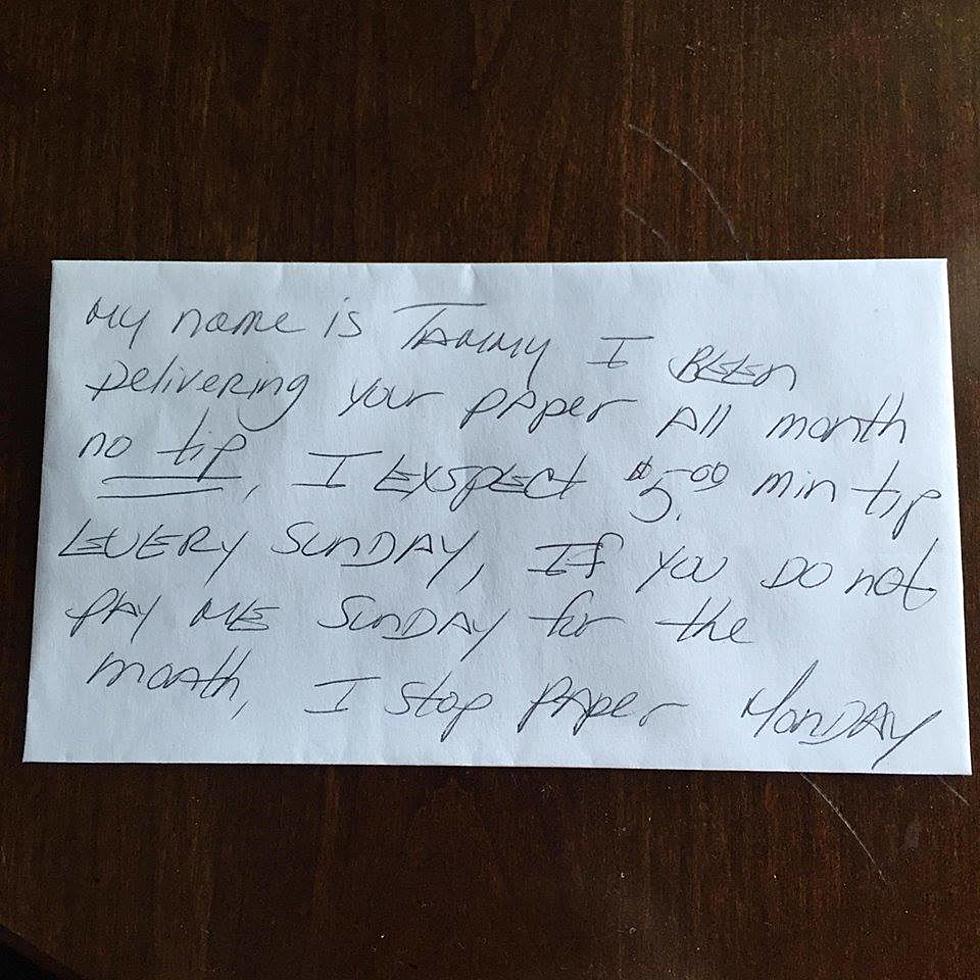 My name is TAMMY I BEEn
Delivering your pAper All month
no tip, I EXSPECt $5.00 min tip
EVERY SUnDAY, If YOU DO not
PAY ME SUnDAY for the
month, I stop PAper MonDAY